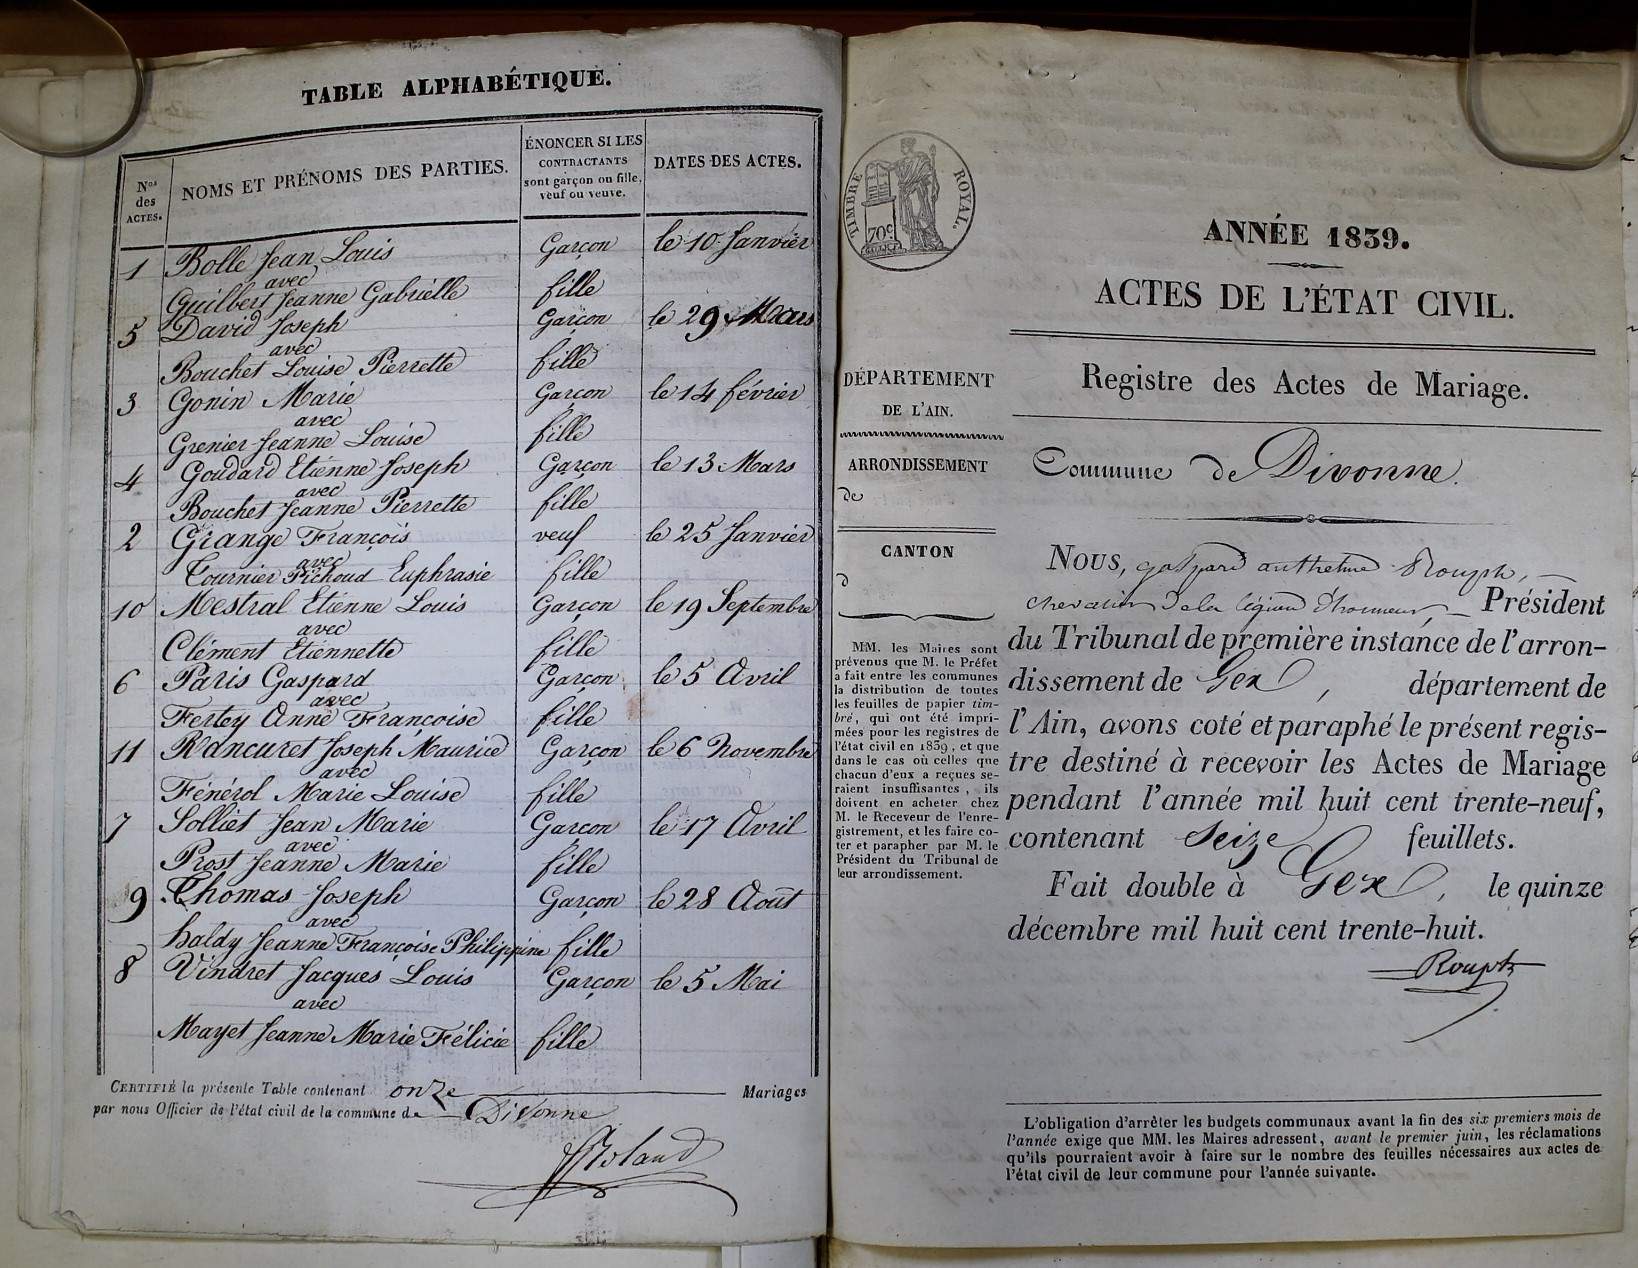 TABLE ALPHABÉTIQUE.
Nos des ACTES.
NOMS ET PRÉNOMS DES PARTIES.
ÉNONCER SI LES
CONTRACTANTS
sont garçon ou fille,
veuf ou veuve.
DATES DES ACTES.
1 Bolle Jean Louis Garçon le 10 Janvier
avec
Guilbert Jeanne Gabrielle fille
5 David Joseph Garçon le 29 Mars
avec
Bouchet Louise Pierrette fille
3 Gonin Marie Garçon le 14 février
avec
Grenier Jeanne Louise fille
4 Goudard Etienne Joseph Garçon le 13 Mars
avec
Bouchet Jeanne Pierrette fille
2 Grange François veuf le 25 Janvier
avec
Tournier Pichoud Euphrasie fille
10 Mestral Etienne Louis Garçon le 19 Septembre
avec
Clément Etiennette fille
6 Paris Gaspard Garçon le 5 Avril
avec
Fertey Anne Françoise fille
11 Rancuret Joseph Maurice Garçon le 6 Novembre
avec
Fénérol Marie Louise fille
7 Solliet Jean Marie Garçon le 17 Avril
avec
Prost Jeanne Marie fille
9 Thomas Joseph Garçon le 28 Août
avec
haldy Jeanne Françoise Philippine fille
8 Vindret Jacques Louis Garçon le 5 Mai
avec
Mayet Jeanne Marie Félicie fille
CERTIFIÉ la présente Table contenant onze Mariages
par nous Officier de l'état civil de la commune de Divonne
Roland
TIMBRE ROYAL.
70c
ANNÉE 1839.
ACTES DE L'ÉTAT CIVIL.
Registre des Actes de Mariage.
Commune de Divonne.
DÉPARTEMENT
DE L'AIN.
ARRONDISSEMENT
de
CANTON
d
MM. les Maires sont
prévenus que M. le Préfet
a fait entre les communes
la distribution de toutes
les feuilles de papier tim-
bré, qui ont été impri-
mées pour les registres de
l'état civil en 1839, et que
dans le cas où celles que
chacun d'eux a reçues se-
raient insuffisantes, ils
doivent en acheter chez
M. le Receveur de l'enre-
gistrement, et les faire co-
ter et parapher par M. le
Président du Tribunal de
leur arrondissement.
NOUS, gaspard anthelme Rouph,
chevalier de la légion d'honneur, Président
du Tribunal de première instance de l'arron-
dissement de Gex, département de
l'Ain, avons coté et paraphé le présent regis-
tre destiné à recevoir les Actes de Mariage
pendant l'année mil huit cent trente-neuf,
contenant seize feuillets.
Fait double à Gex, le quinze
décembre mil huit cent trente-huit.
Rouph
L'obligation d'arrêter les budgets communaux avant la fin des six premiers mois de
l'année exige que MM. les Maires adressent, avant le premier juin, les réclamations
qu'ils pourraient avoir à faire sur le nombre des feuilles nécessaires aux actes de
l'état civil de leur commune pour l'année suivante.